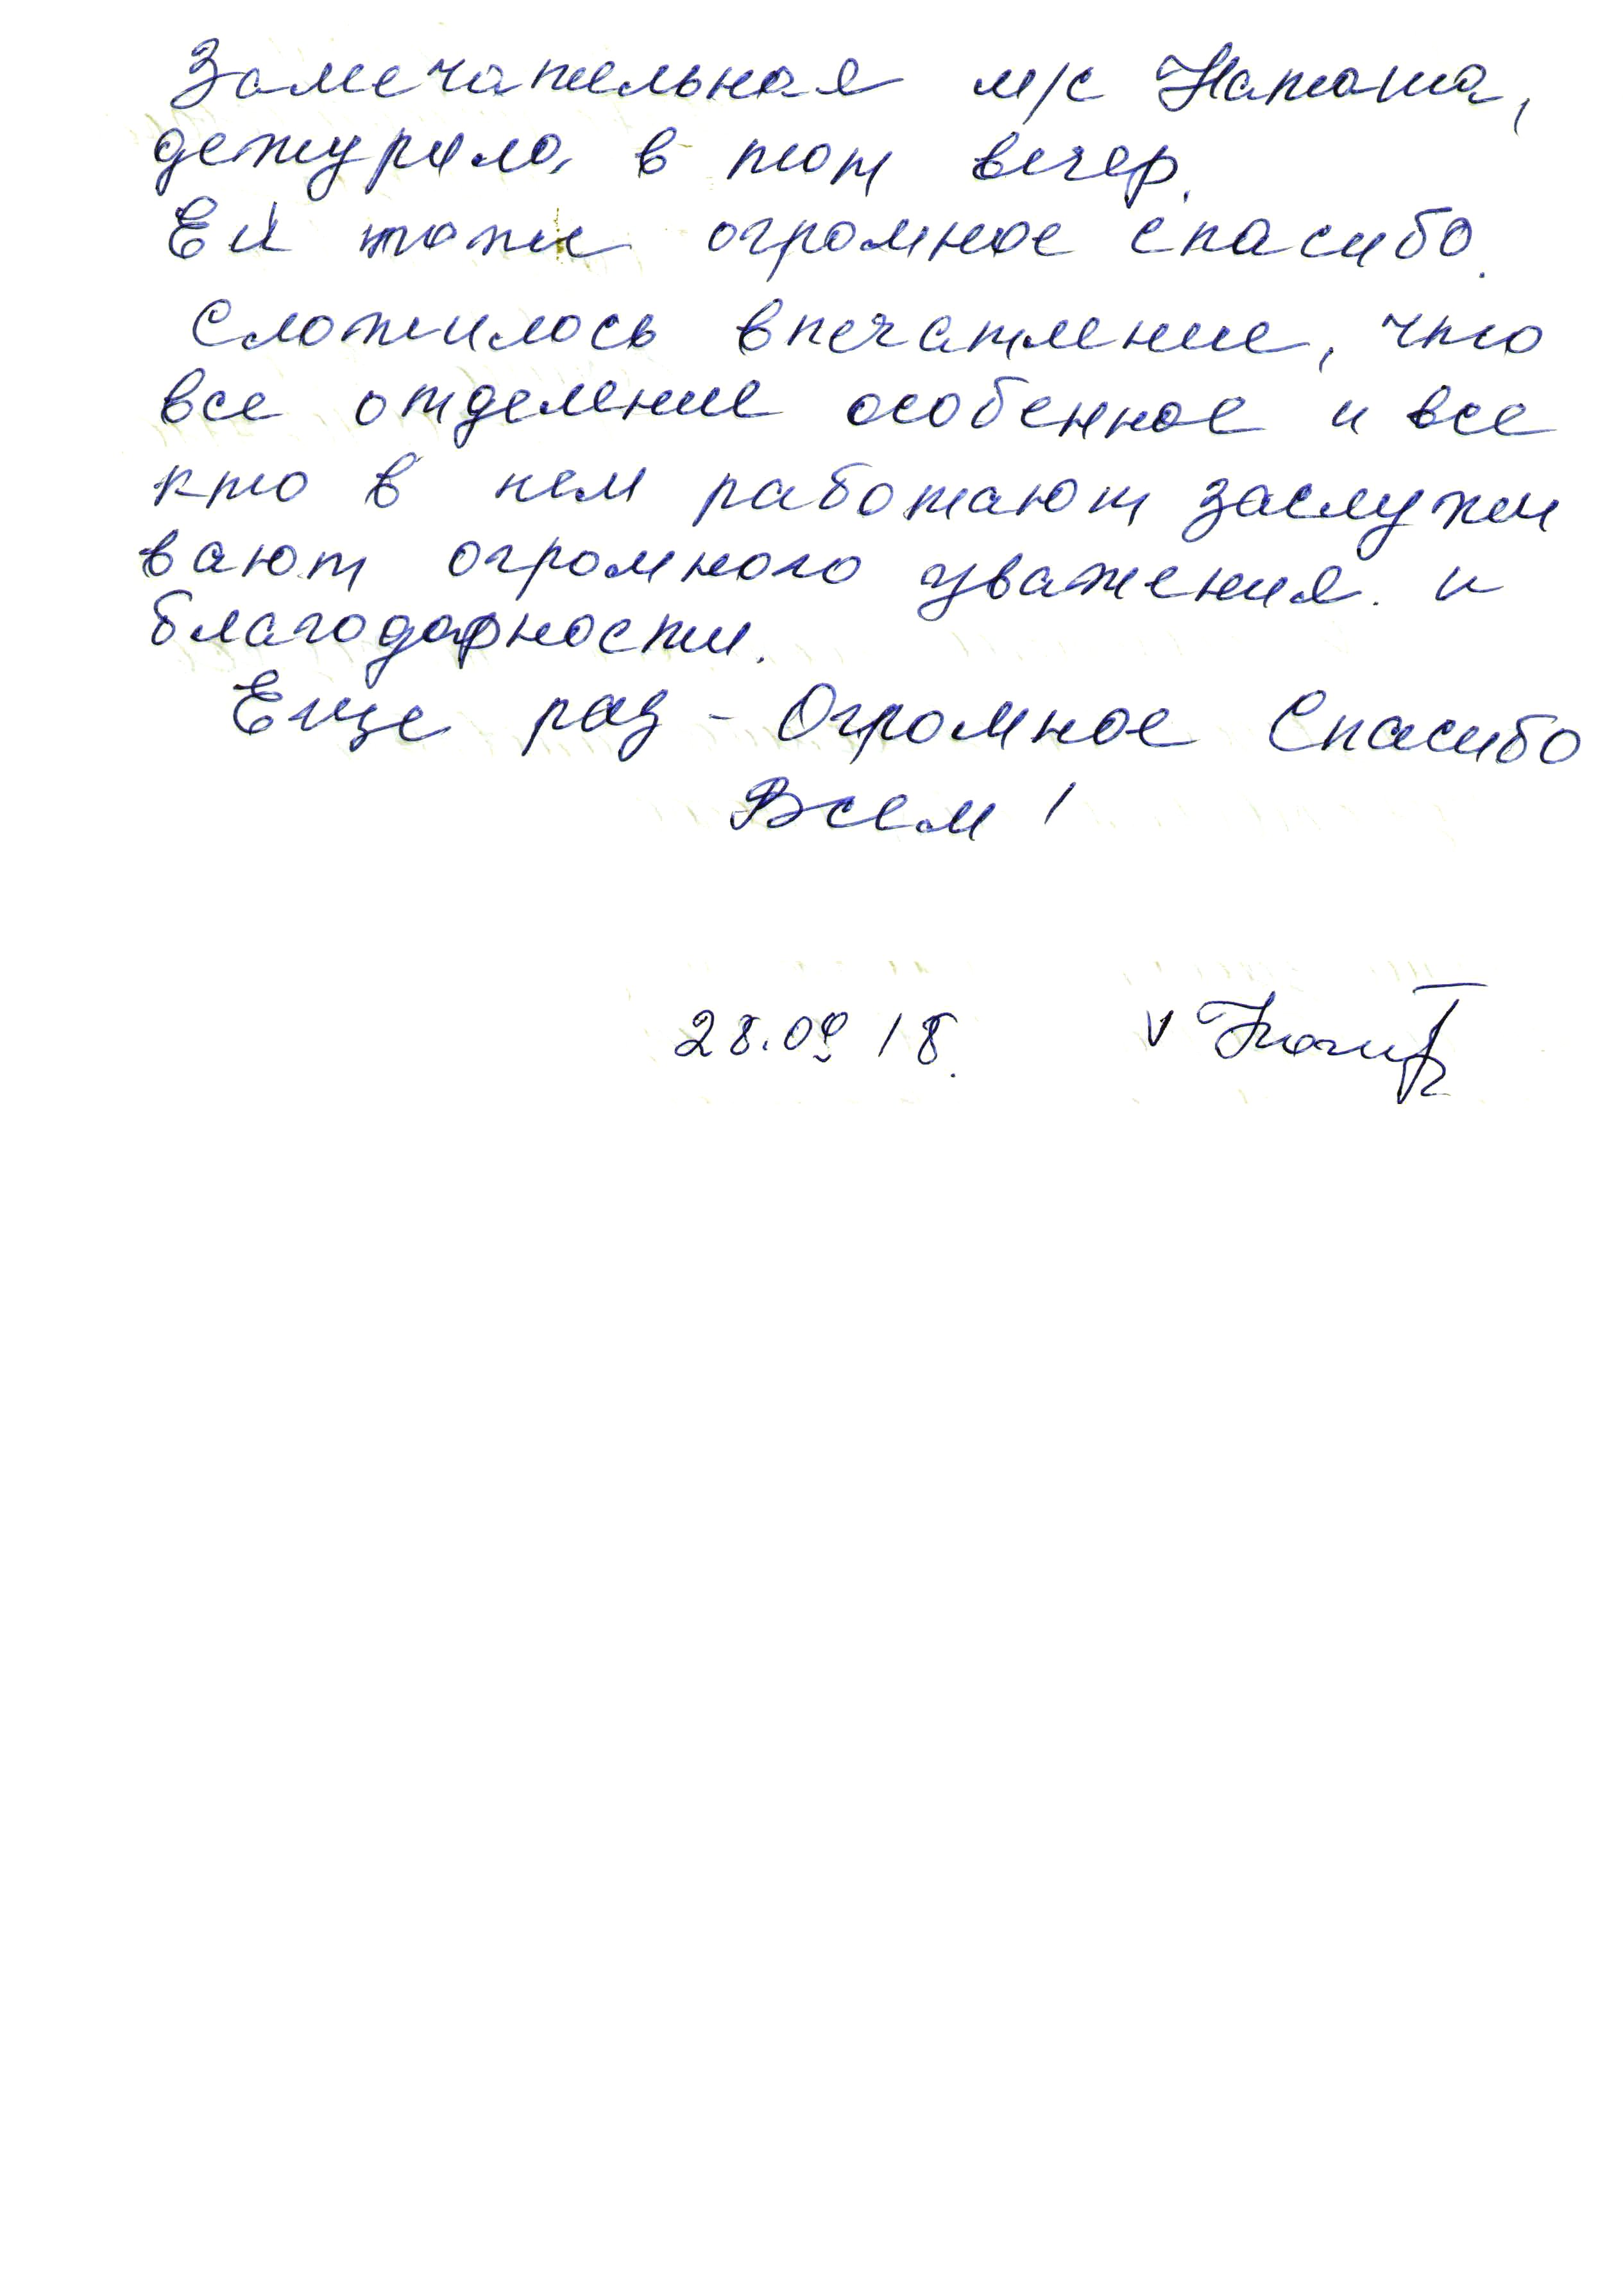 Замечательная м/с Наташа,
дежурила в тот вечер.
Ей тоже огромное спасибо.
Сложилось впечатление, что
все отделение особенное и все
кто в нем работают заслужи
вают огромного уважения и
благодарности.
Еще раз - Огромное Спасибо
Всем!
28.09 18.